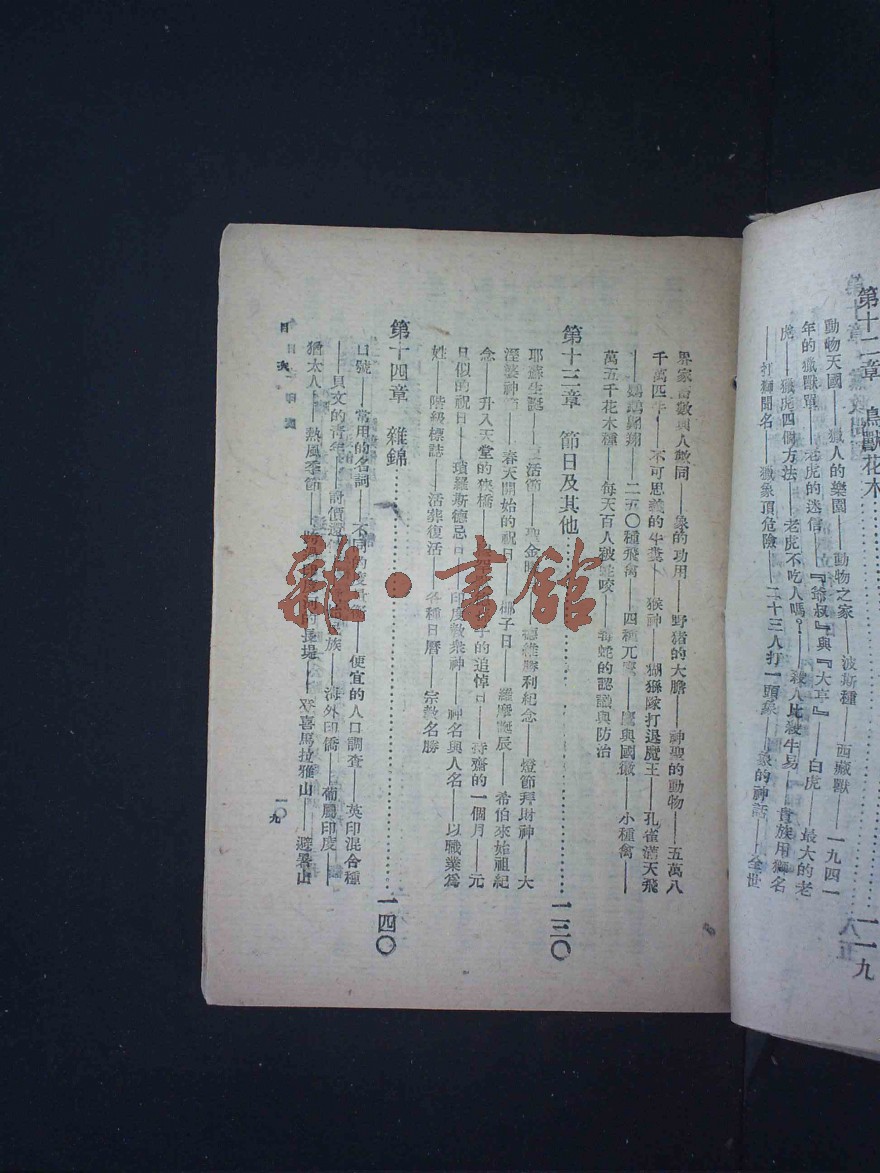 第十二章　鳥獸花木……一一九
動物天國——獵人的樂園——動物之家——波斯種——西藏獸——一九四一
年的獵獸單——老虎的迷信——『爺叔』與『大亨』——白虎——最大的老
虎——獵虎四個方法——老虎不吃人嗎？——殺人比殺牛易——貴族用獅名
——打獅聞名——獵象頂危險——二十三人打一頭象——象的神話——全世
界家畜數與人數同——象的功用——野猪的大膽——神聖的動物——五萬八
千萬匹牛——不可思議的牛糞——猴神——猢猻隊打退魔王——孔雀滿天飛
——鸚鵡翱翔——二五〇種飛禽——四種兀鷹——鷹與國徽——小種禽——
萬五千花木種——每天百人被蛇咬——毒蛇的認識與防治
第十三章　節日及其他……一三〇
耶穌生誕——活節——聖金——德維勝利紀念——燈節拜財神——大
涅婆神節——春天開始的祝日——椰子日——羅摩誕辰——希伯來始祖紀
念——升入天堂的獎橋——子的追悼日——持齋的一個月——元
旦似的祝日——瑣羅斯德忌日——印度教衆神——神名與人名——以職業爲
姓——階級標誌——活葬復活——各種日曆——宗教名勝
第十四章　雜錦……一四〇
口號——常用的名詞——不同的——便宜的人口調査——英印混合種
——貝文的青年——討價還——民族——海外印僑——葡屬印度——
猶太人——熱風季節——長堤——登喜馬拉雅山——避暑山
目次
一〇九
雜·書館